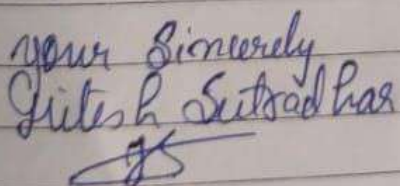 your Sincerely
Jitesh Sutradhar